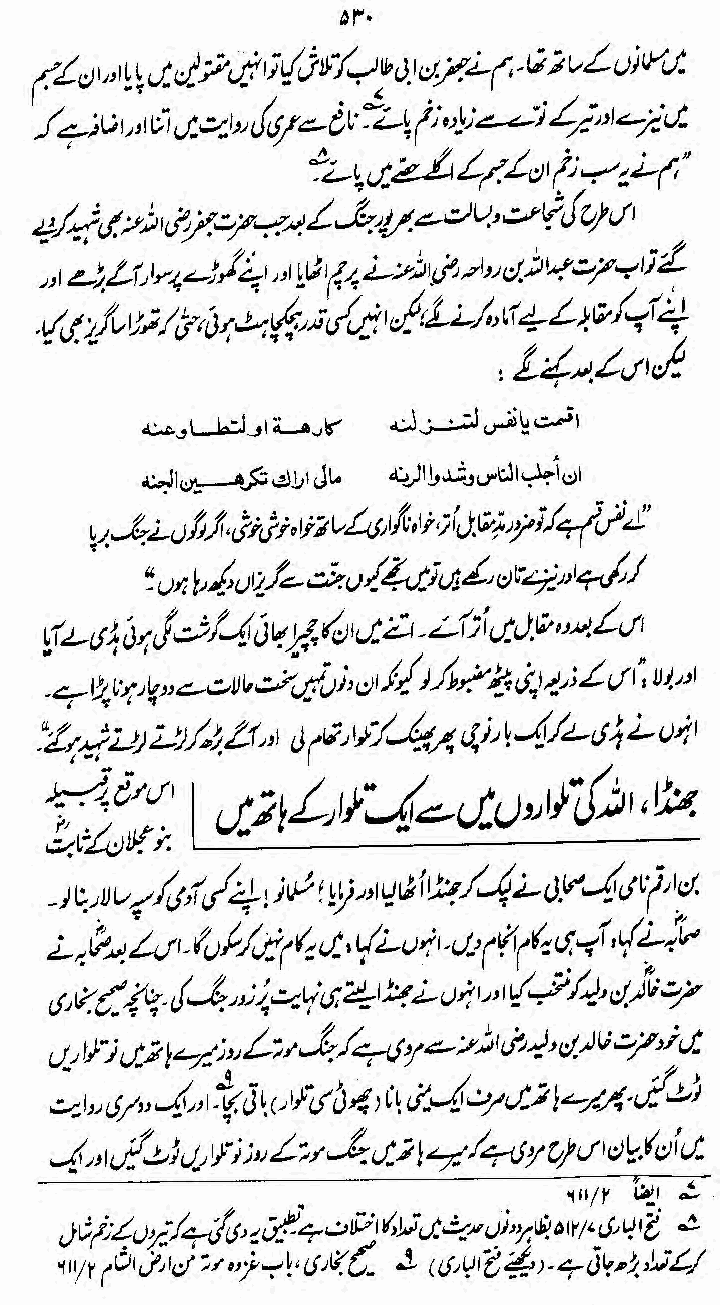 ۵۳۰
میں مسلمانوں کے ساتھ تھا۔ ہم نے جعفر بن ابی طالب کو تلاش کیا تو انہیں مقتولین میں پایا اور ان کے جسم
میں نیزے اور تیر کے نوّے سے زیادہ زخم پائے۔ؔ۷ نافع سے عمری کی روایت میں اتنا اور اضافہ ہے کہ
”ہم نے یہ سب زخم ان کے جسم کے اگلے حصّے میں پائے۔ؔ۸
اس طرح کی شجاعت و بسالت سے بھرپور جنگ کے بعد جب حضرت جعفر رضی اللہ عنہ بھی شہید کر دیے
گئے تو اب حضرت عبداللہ بن رواحہ رضی اللہ عنہ نے پرچم اٹھایا اور اپنے گھوڑے پر سوار آگے بڑھے اور
اپنے آپ کو مقابلہ کے لیے آمادہ کرنے لگے؛ لیکن انہیں کسی قدر ہچکچاہٹ ہوئی، حتیٰ کہ تھوڑا سا گریز بھی کیا۔
لیکن اس کے بعد کہنے لگے :
اقمت یا نفس لتنزلنه کارهة او لتطاوعنه
ان أجلب الناس وشدوا الرنه مالی اراك تکرهین الجنه
”اے نفس قسم ہے کہ تو ضرور مدِّ مقابل اُتر، خواہ ناگواری کے ساتھ خواہ خوشی خوشی، اگر لوگوں نے جنگ برپا
کر رکھی ہے اور نیزے تان رکھے ہیں تو میں تجھے کیوں جنّت سے گریزاں دیکھ رہا ہوں۔“
اس کے بعد وہ مقابل میں اُتر آئے۔ اتنے میں ان کا چچیرا بھائی ایک گوشت لگی ہوئی ہڈی لے آیا
اور بولا: ”اس کے ذریعہ اپنی پیٹھ مضبوط کر لو کیونکہ ان دنوں تمہیں سخت حالات سے دوچار ہونا پڑا ہے۔
انہوں نے ہڈی لے کر ایک بار نوچی پھر پھینک کر تلوار تھام لی اور آگے بڑھ کر لڑتے لڑتے شہید ہو گئے۔“
جھنڈا، اللہ کی تلواروں میں سے ایک تلوار کے ہاتھ میں
اس موقع پر قبیلہ
بنو عجلان کے ثابتؓ
بن ارقم نامی ایک صحابی نے لپک کر جھنڈا اُٹھا لیا اور فرمایا؛ مُسلمانو! اپنے کسی آدمی کو سپہ سالار بنا لو۔
صحابہؓ نے کہا، آپ ہی یہ کام انجام دیں۔ انہوں نے کہا، میں یہ کام نہیں کر سکوں گا۔ اس کے بعد صحابہؓ نے
حضرت خالدؓ بن ولید کو منتخب کیا اور انہوں نے جھنڈا لیتے ہی نہایت پُرزور جنگ کی۔ چنانچہ صحیح بخاری
میں خود حضرت خالد بن ولید رضی اللہ عنہ سے مروی ہے کہ جنگ موتہ کے روز میرے ہاتھ میں نو تلواریں
ٹوٹ گئیں۔ پھر میرے ہاتھ میں صرف ایک یمنی بانا (چھوٹی سی تلوار) باقی بچا۔ؔ۹ اور ایک دوسری روایت
میں اُن کا بیان اس طرح مروی ہے کہ میرے ہاتھ میں جنگ موتہ کے روز نو تلواریں ٹوٹ گئیں اور ایک
۷ ایضاً ۶۱۱/۲
۸ فتح الباری ۵۱۲/۷ بظاہر دونوں حدیث میں تعداد کا اختلاف ہے۔ تطبیق یہ دی گئی ہے کہ تیروں کے زخم شامل
کر کے تعداد بڑھ جاتی ہے۔ (دیکھئے فتح الباری) ۹ صحیح بخاری، باب غزوہ موتہ من ارض الشام ۶۱۱/۲